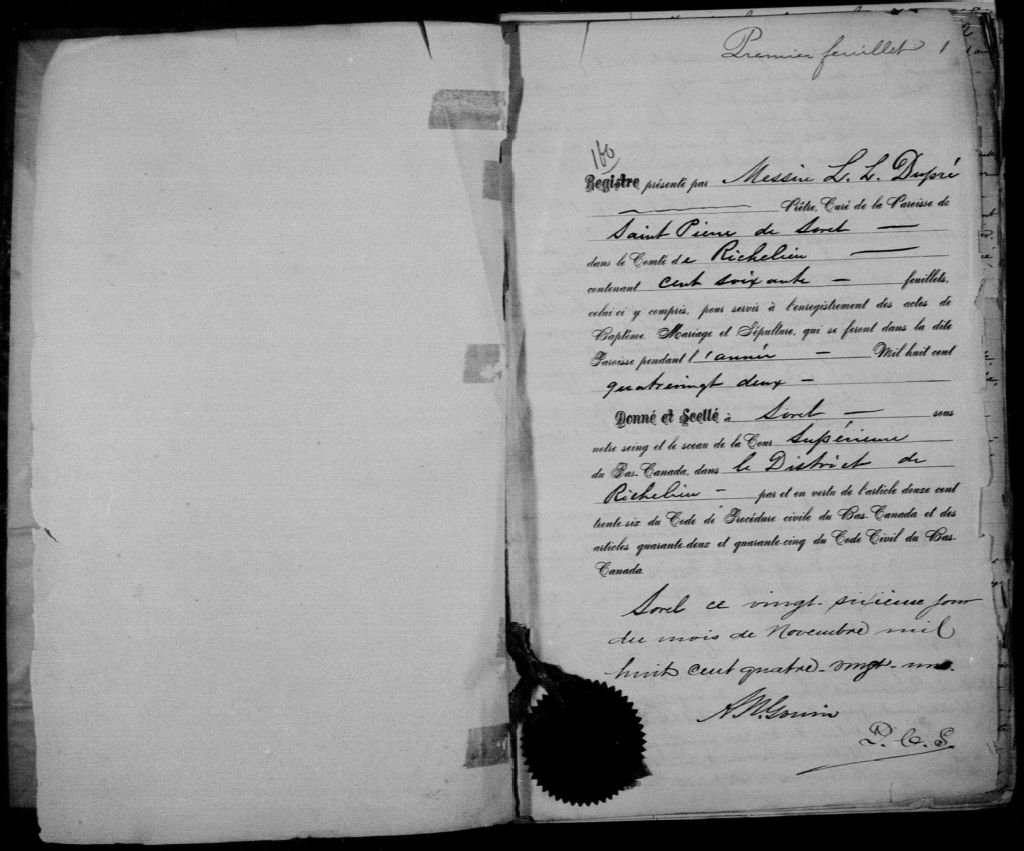 Premier feuillet 1
160
Registre présenté par Messire L. L. Dupré
Prêtre, Curé de la Paroisse de
Saint Pierre de Sorel —
dans le Comté de Richelieu —
contenant cent soixante — feuillets,
celui-ci y compris, pour servir à l'enregistrement des actes de
Baptême, Mariage et Sépulture, qui se feront dans la dite
Paroisse pendant l'année — Mil huit cent
quatrevingt deux —
Donné et Scellé à Sorel — sous
notre seing et le sceau de la Cour Supérieure
du Bas-Canada, dans le District de
Richelieu — par et en vertu de l'article douze cent
trente-six du Code de Procédure civile du Bas-Canada et des
articles quarante-deux et quarante-cinq du Code Civil du Bas-
Canada.
Sorel ce vingt-sixième jour
du mois de Novembre mil
huit cent quatre-vingt-un.
A. N. Gouin
P. C. S.